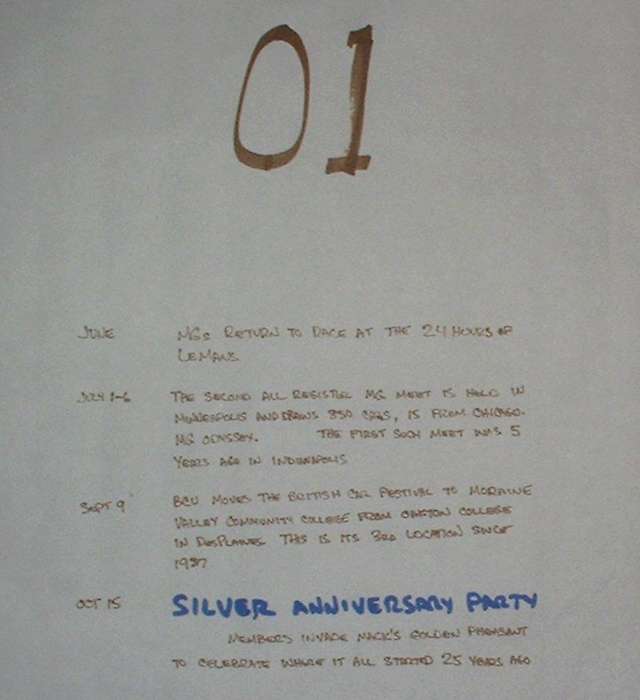 01
JUNE MGs RETURN TO RACE AT THE 24 HOURS OF
LEMANS
JULY 1-6 THE SECOND ALL REGISTER MG MEET IS HELD IN
MINNEAPOLIS AND DRAWS 850 CARS, 15 FROM CHICAGO-
MG ODYSSEY. THE FIRST SUCH MEET WAS 5
YEARS AGO IN INDIANAPOLIS
SEPT 9 BCU MOVES THE BRITISH CAR FESTIVAL TO MORAINE
VALLEY COMMUNITY COLLEGE FROM OAKTON COLLEGE
IN DESPLAINES. THIS IS ITS 3RD LOCATION SINCE
1987
OCT 15 SILVER ANNIVERSARY PARTY
MEMBERS INVADE MACK'S GOLDEN PHEASANT
TO CELEBRATE WHERE IT ALL STARTED 25 YEARS AGO